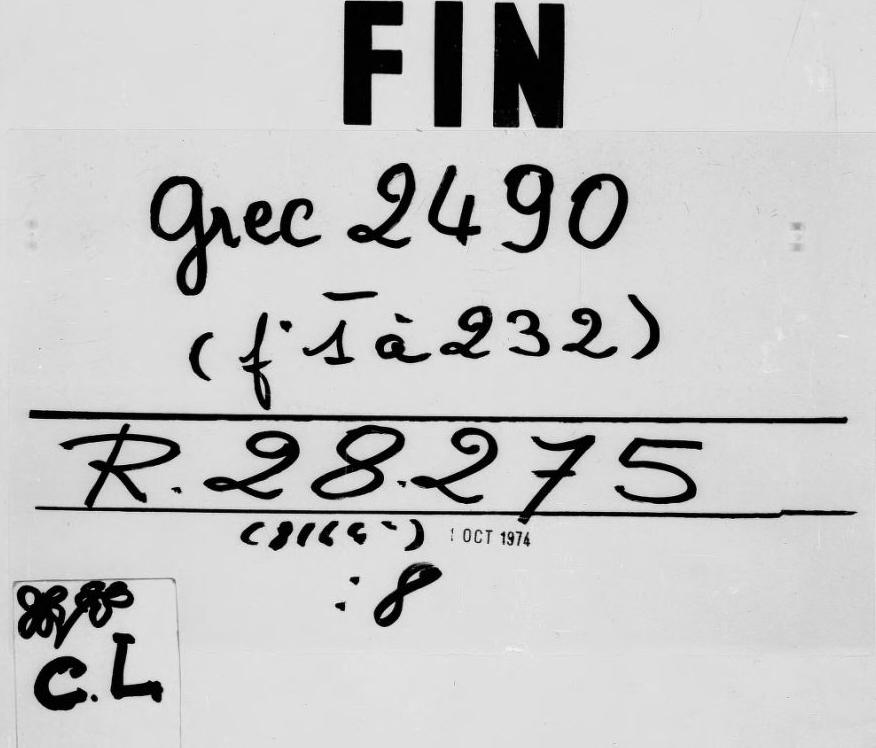 FIN
Grec 2490
(f. 1 à 232)
R.28.275
OCT 1974
:8
C.L